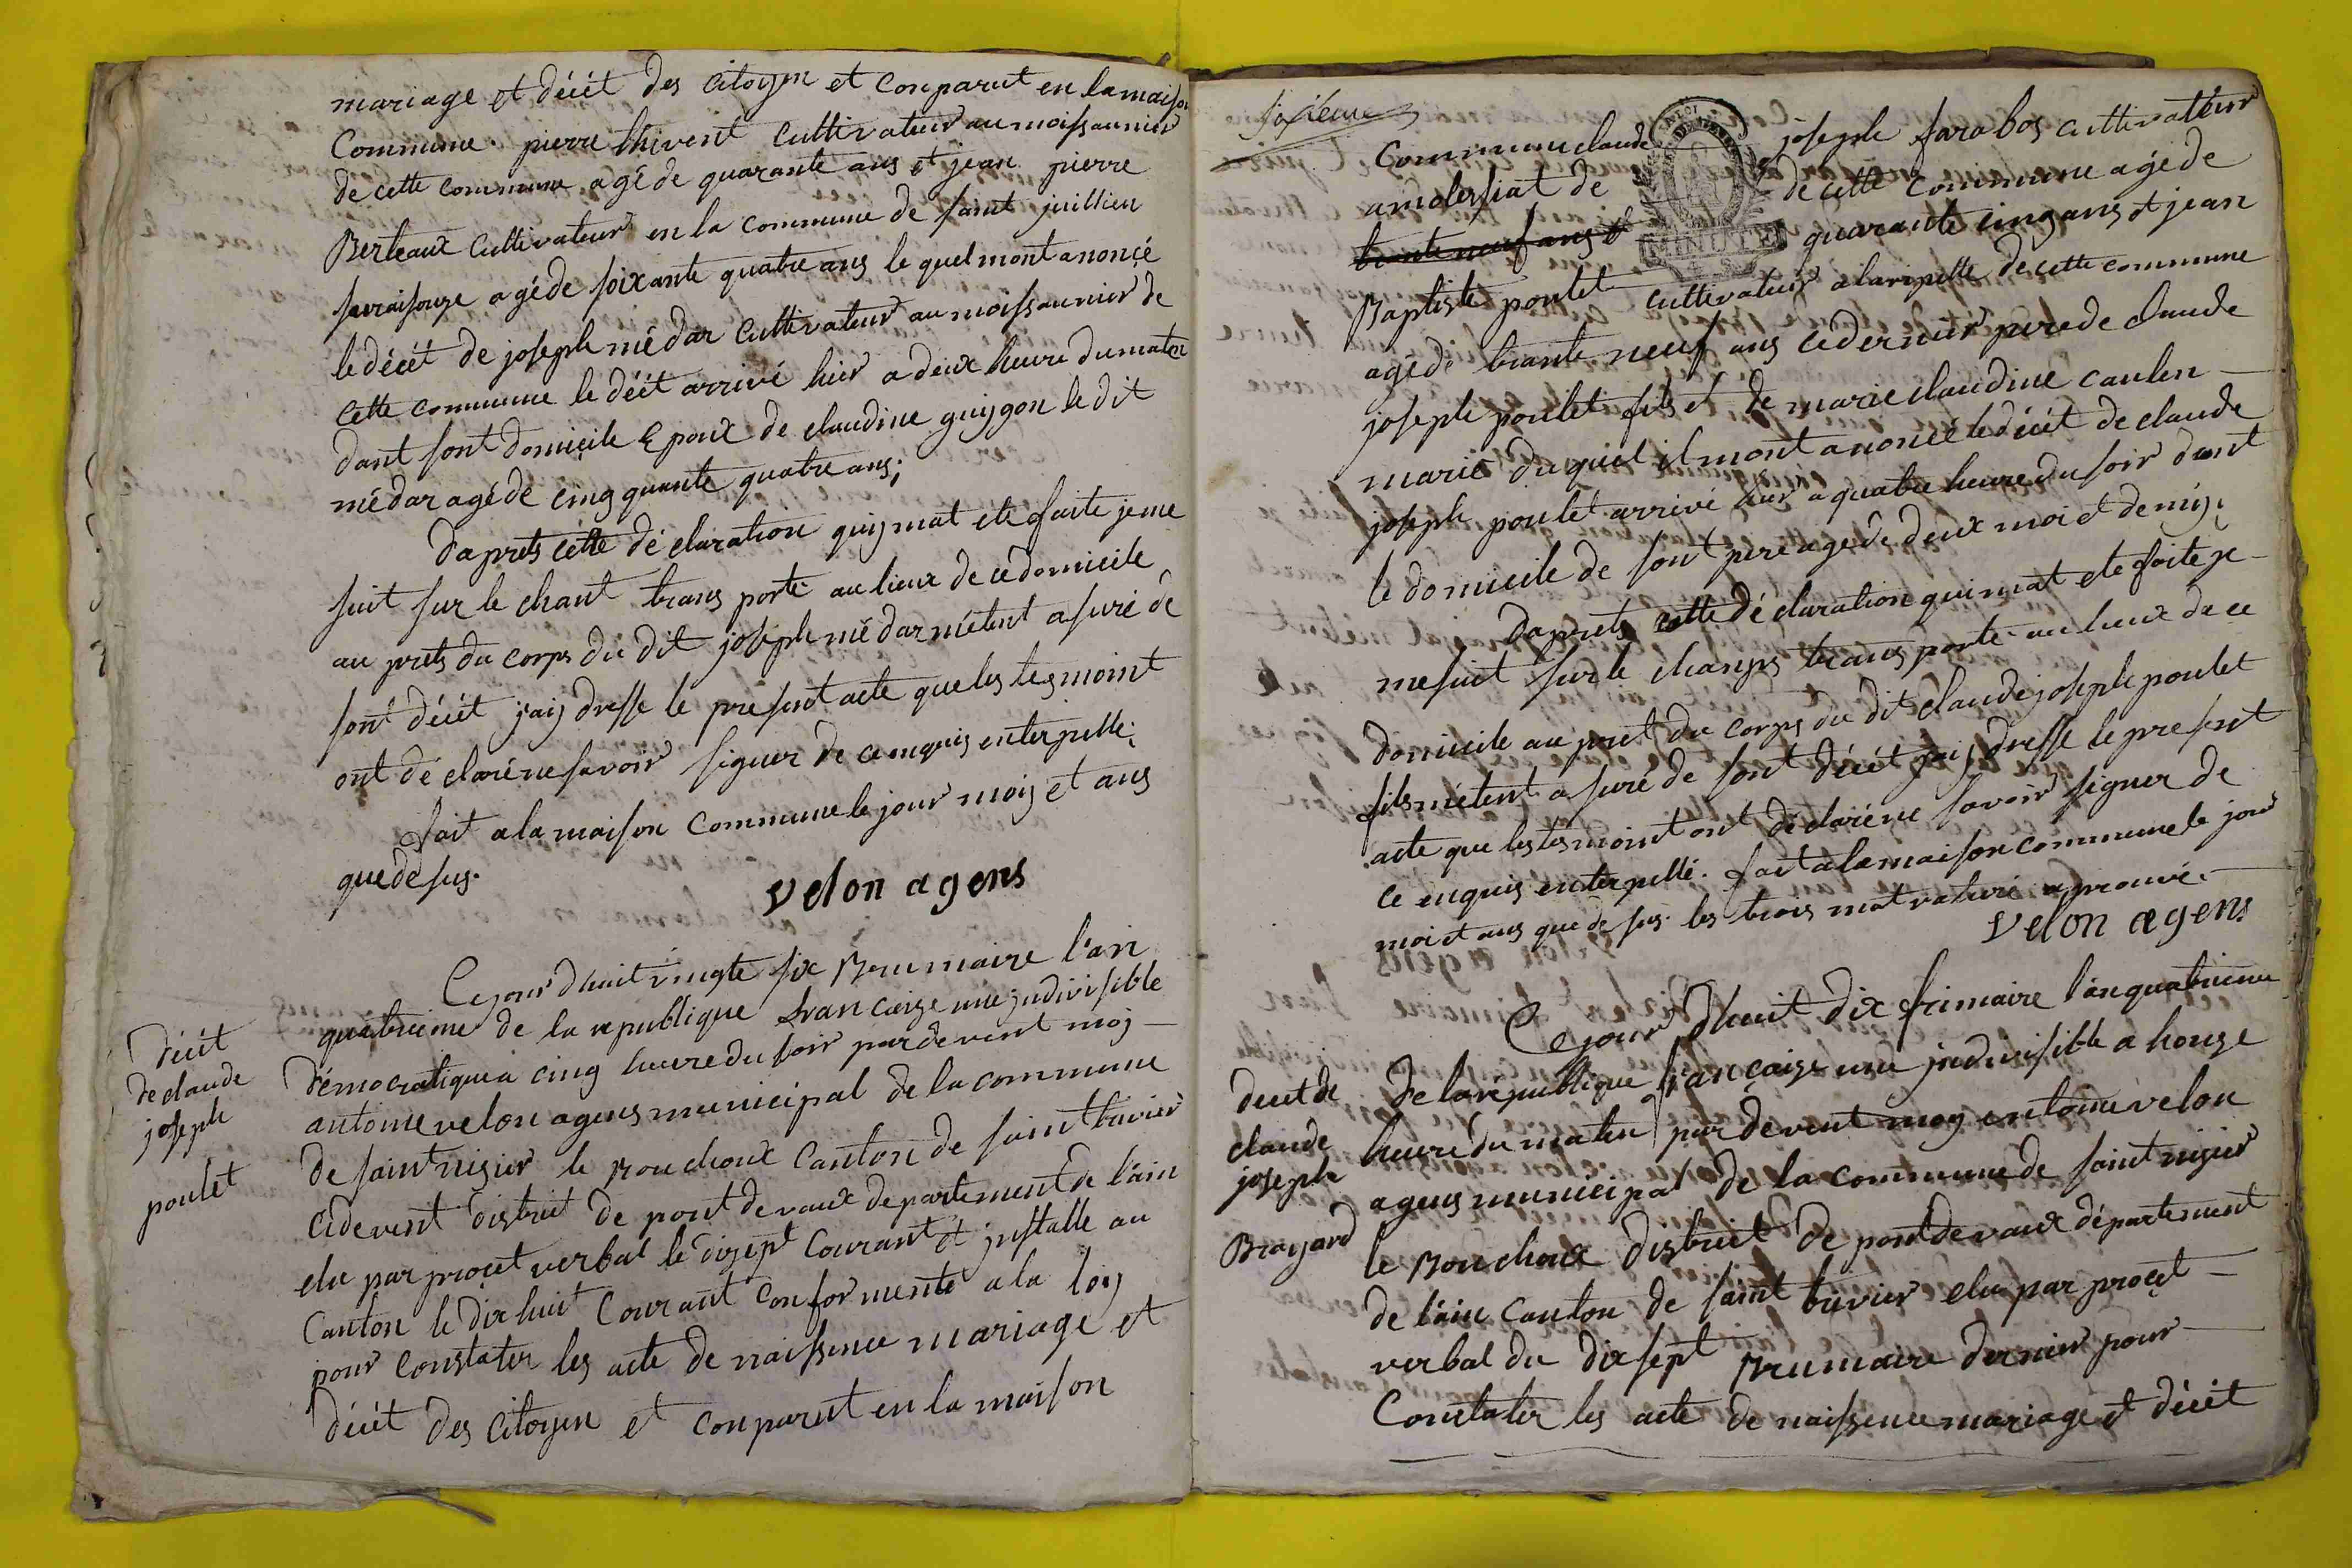 mariage et décèt des citoyen et conparut en la maison
Commune. pierre thivent cultivateur au moissaunier
de cette commune agé de quarante ans et jean pierre
Berteaux cultivateur en la commune de saint jullien
agé de soixante quatre ans le quel mont anoncé
le décèt de joseph médar cultivateur au moissaunier de
cette commune le décèt arrivé hier a deux heure du maten
dant sont domicile Epoux de claudine guygon le dit
médar agé de cinq quante quatre ans;
daprets cette déclaration quiy mat ete faite je me
suit sur le chant trans porté au lieux de ce domicile
au prets du corps du dit joseph médar métent asuré de
sont décèt jaiy dresse le present acte que les tesmoint
ont déclaré ne savoir signer de ce enquis enterpellé.
fait a la maison commune le jour moiy et ans
que desus.
velon agens
décèt
de claude
joseph
poulet
Cejourdhuit vingte six Brumaire l'an
quatrieme de la republique francaize une jndivisible
démocratique a cinq heure du soir pardevent moy
antoine velon agens municipal de la commune
de saint nizier le Bouchoux canton de saint trivier
cidevent district de pont de vaux departement de l'ain
elu par procet verbal le dizept courant et jnstalle au
Canton le dix huit courant conformente a la loiy
pour constater les acte de naissence mariage et
décèt des citoyen et conparut en la maison
sixieme
Commune claude joseph farabos cultivateur
amolessiat de de cette commune agé de
trante neuf ans et quarante cinq ans et jean
Baptiste poulet cultivateur a laripelle de cette commune
agé de trante neuf ans ce dernier pere de claude
joseph poulet fils et de marie claudine caulen
marié du quel il mont anoncé le décèt de claude
joseph poulet arrivé hier a quatre heure du soir dant
le domicile de sont pere agé de deux moi et demiy.
daprets cette déclaration quimat ete faite je
me suit sur le champs trans porté au lieux de ce
domicile au pret du corps du dit claude joseph poulet
fils métent asuré de sont décèt jaiy dresse le present
acte que les tesmoint ont déclaré ne savoir signer de
ce enquis enterpellé. fait a la maison commune le jour
moi et ans que de sus. les trois mot raturé aprouvé.
velon agens
MINUTE
décèt de
claude
joseph
Broyard
Cejourdhuit dix frimaire l'an quatrieme
de la republique francaize une jndivisible a honze
heure du maten pardevent moy entoine velon
agens municipal de la commune de saint nizier
le Bouchoux district de pont de vaux département
de l'ain canton de saint trivier elu par procet
verbal du dix sept Brumaire dernier pour
Constater les acte de naissence mariage et décèt